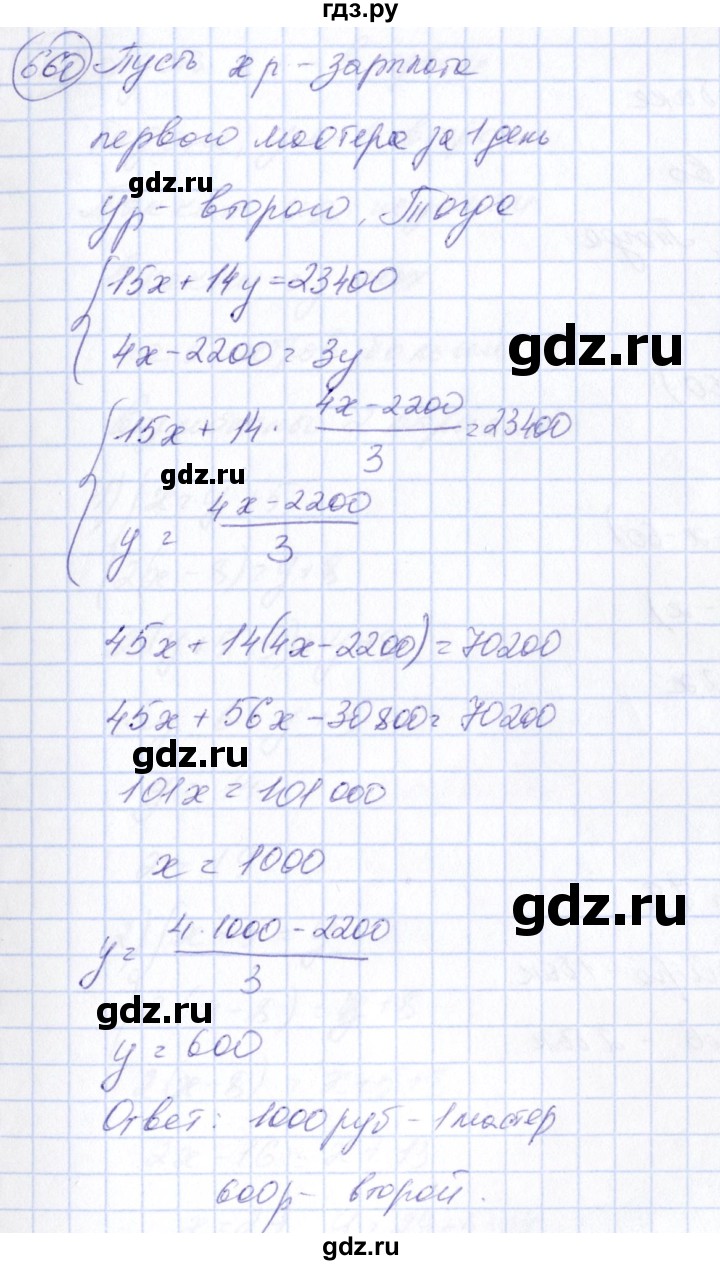 гдз.ру
660 Пусть х р - зарплата
первого мастера за 1 день
gdz.ru
у р - второго, Тогда
15x + 14y = 23400
gdz.ru
4x - 2200 = 3y
15x + 14 · (4x - 2200)/3 = 23400
gdz.ru
y = (4x - 2200)/3
45x + 14(4x - 2200) = 70200
45x + 56x - 30800 = 70200
gdz.ru
101x = 101000
x = 1000
gdz.ru
y = (4·1000 - 2200)/3
gdz.ru
y = 600
Ответ: 1000 руб - 1 мастер
600р - второй.
gdz.ru